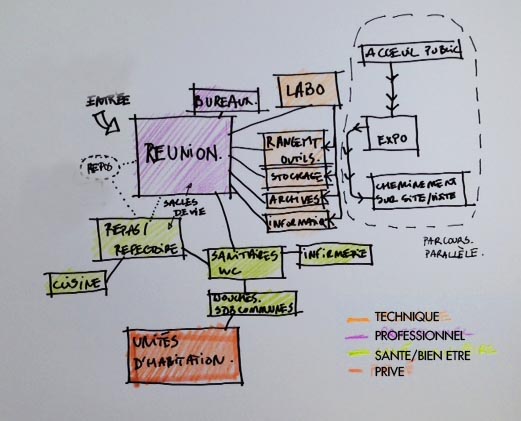 ACCEUIL PUBLIC
LABO
BUREAUX.
ENTRÉE
REUNION.
RANGEMT
OUTILS.
EXPO
REPOS
STOCKAGE
CHEMINEMENT
SUR SITE/VISITE
ARCHIVES
SALLES
DE VIE
INFORMATIQ
REPAS/
REFECTOIRE
PARCOURS.
PARALLÈLE.
SANITAIRES
WC
INFIRMERIE
CUISINE
DOUCHES.
SDB COMMUNES
TECHNIQUE
UNITÉS
D'HABITATION.
PROFESSIONNEL
SANTE/BIEN ETRE
PRIVE